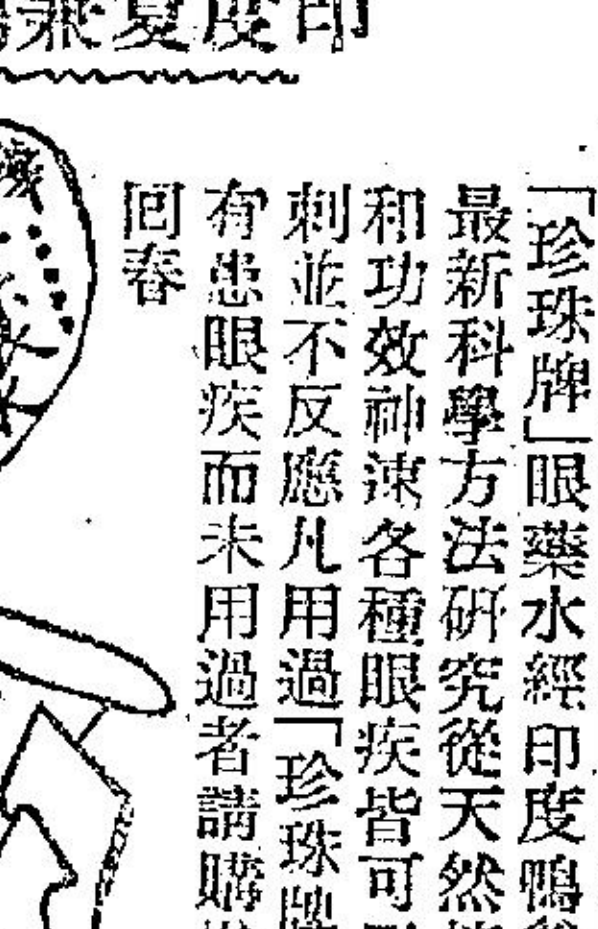 印度夏兼
「珍珠牌」眼藥水經印度鴨
最新科學方法研究從天然
和功效神速各種眼疾皆可
刺並不反應凡用過「珍珠牌
有患眼疾而未用過者請購
回春